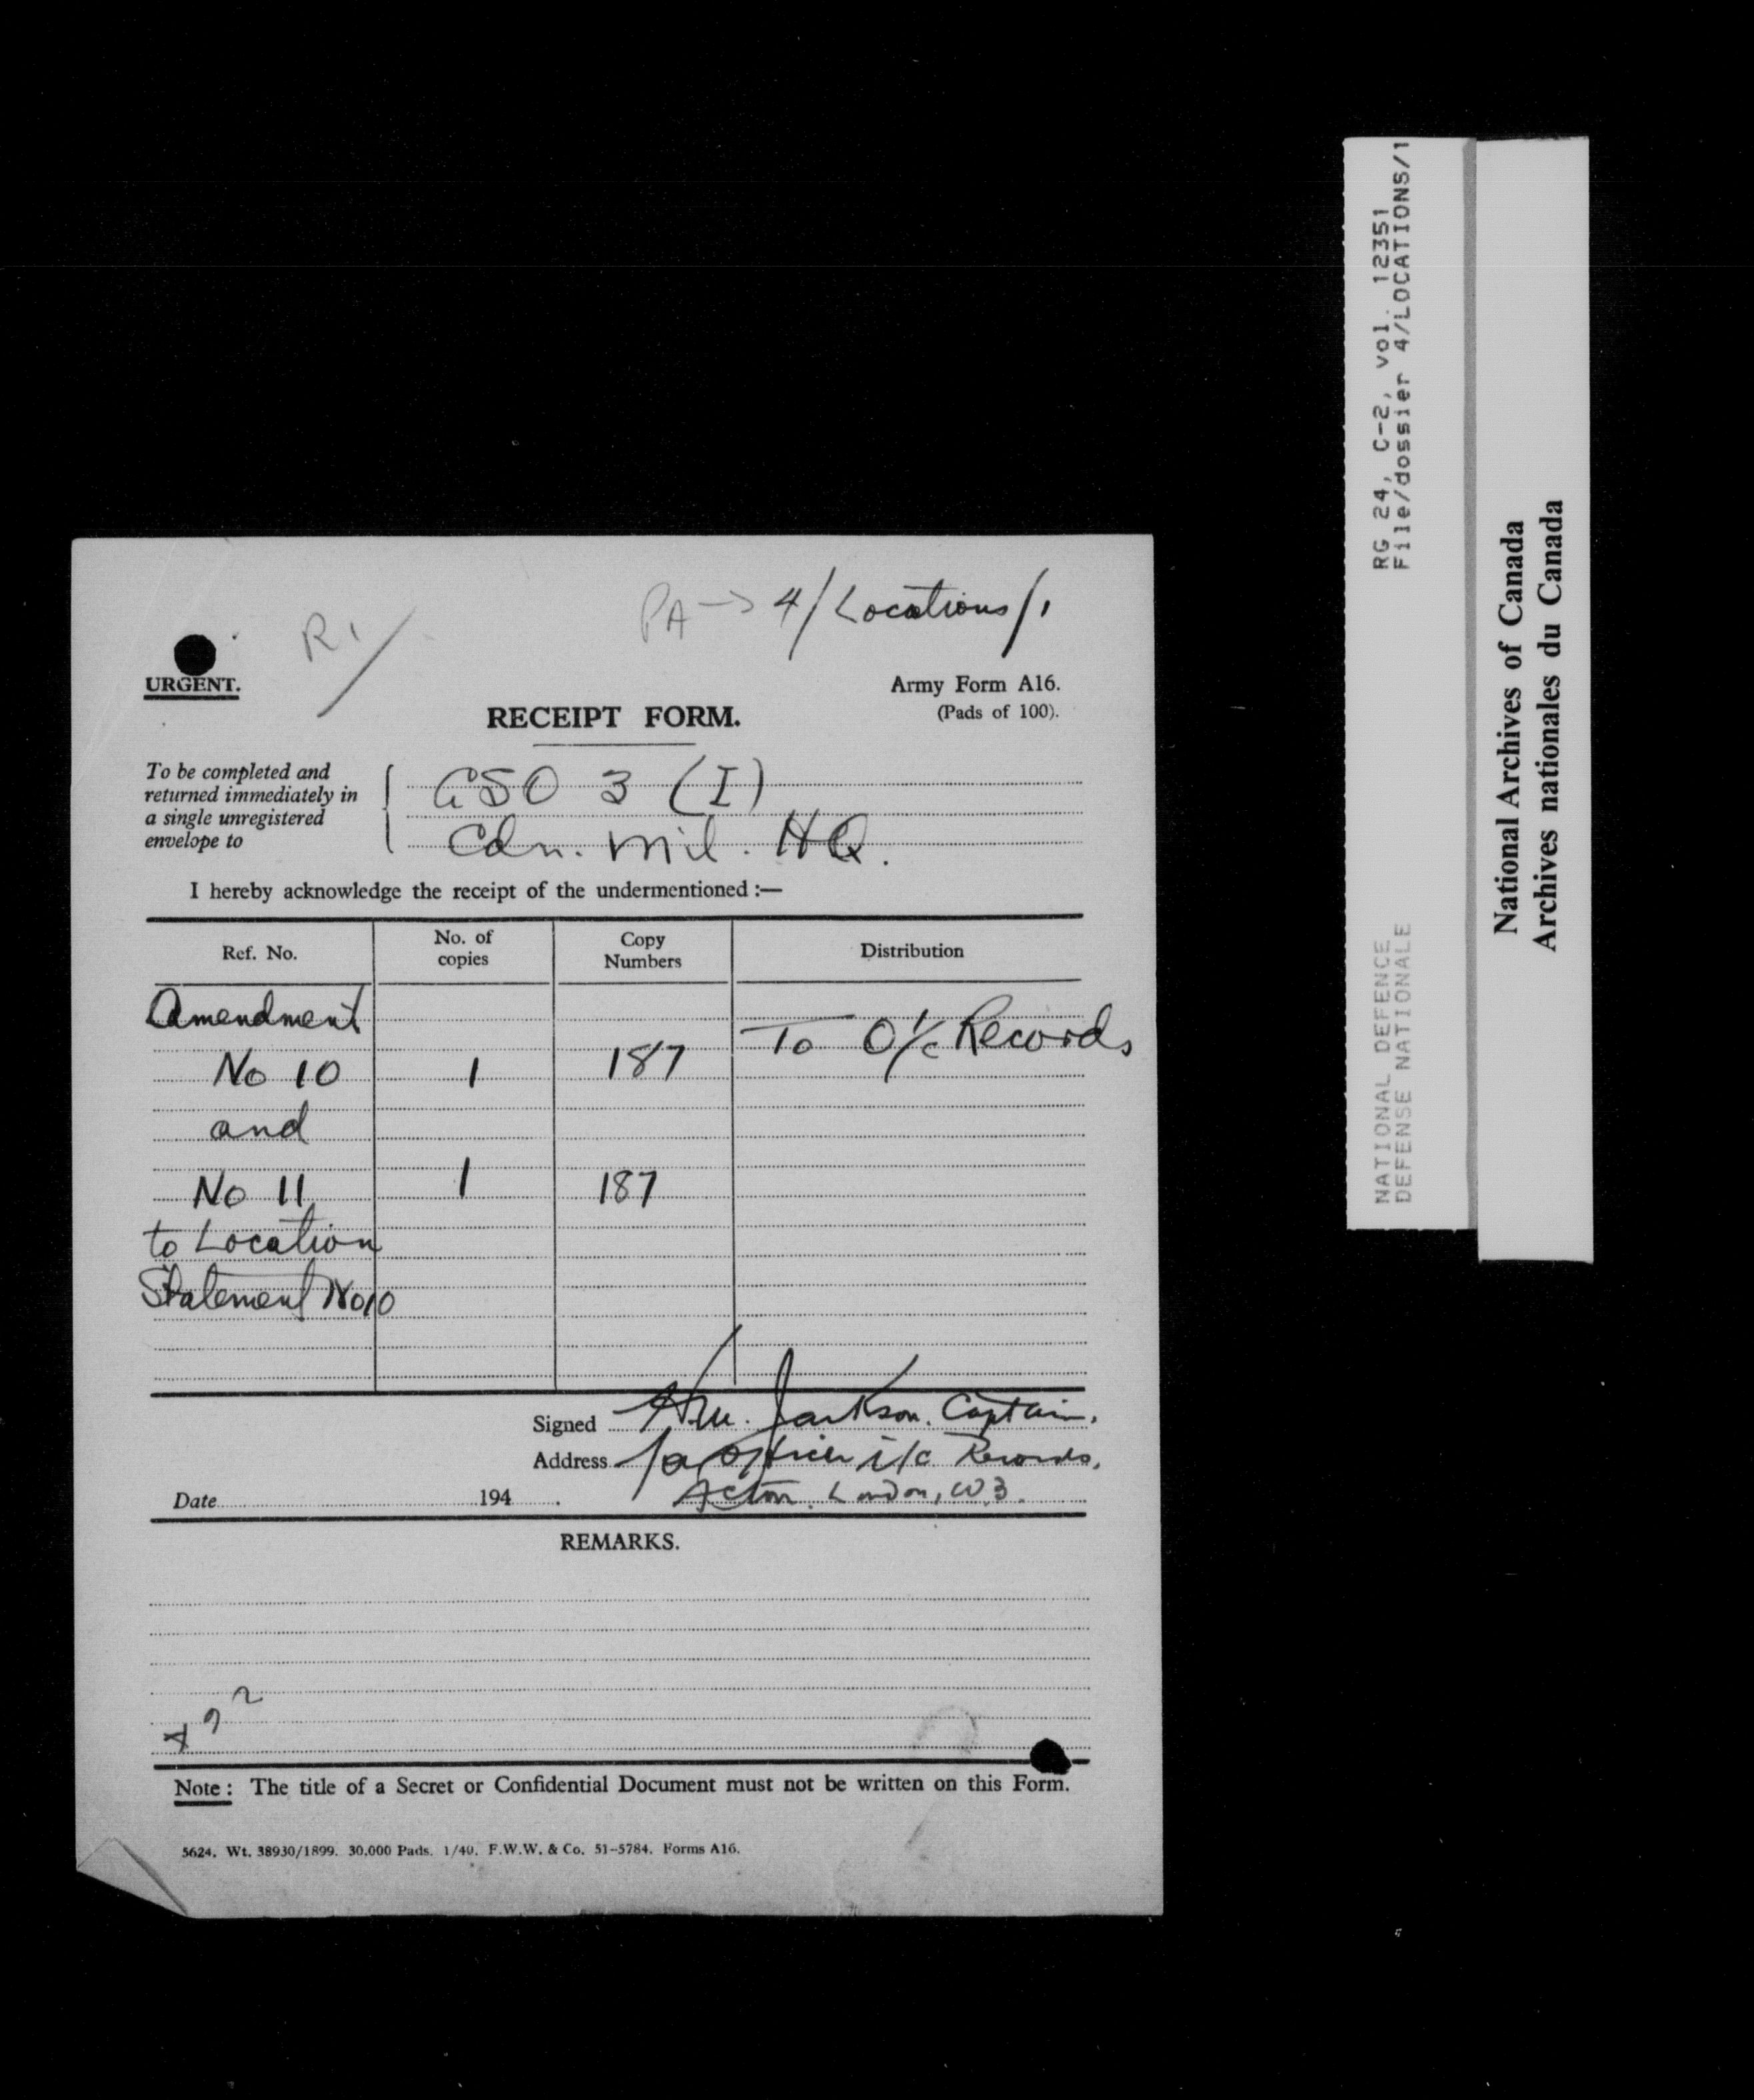 PA → 4/Locations/1
R1/
URGENT.
Army Form A16.
(Pads of 100).
RECEIPT FORM.
To be completed and
returned immediately in
a single unregistered
envelope to
GSO 3 (I)
Cdn. Mil. HQ.
I hereby acknowledge the receipt of the undermentioned :—
Ref. No. No. of copies Copy Numbers Distribution
Amendment
To O i/c Records
No 10 1 187
and
No 11 1 187
to Location
Statement No 10
Signed Jackson. Captain.
Address for Officer i/c Records,
Date 194 . Acton. London, W.3.
REMARKS.
Note : The title of a Secret or Confidential Document must not be written on this Form.
5624. Wt. 38930/1899. 30,000 Pads. 1/40. F.W.W. & Co. 51-5784. Forms A16.
RG 24, C-2, vol. 12351
File/dossier 4/LOCATIONS/1
NATIONAL DEFENCE
DEFENSE NATIONALE
National Archives of Canada
Archives nationales du Canada